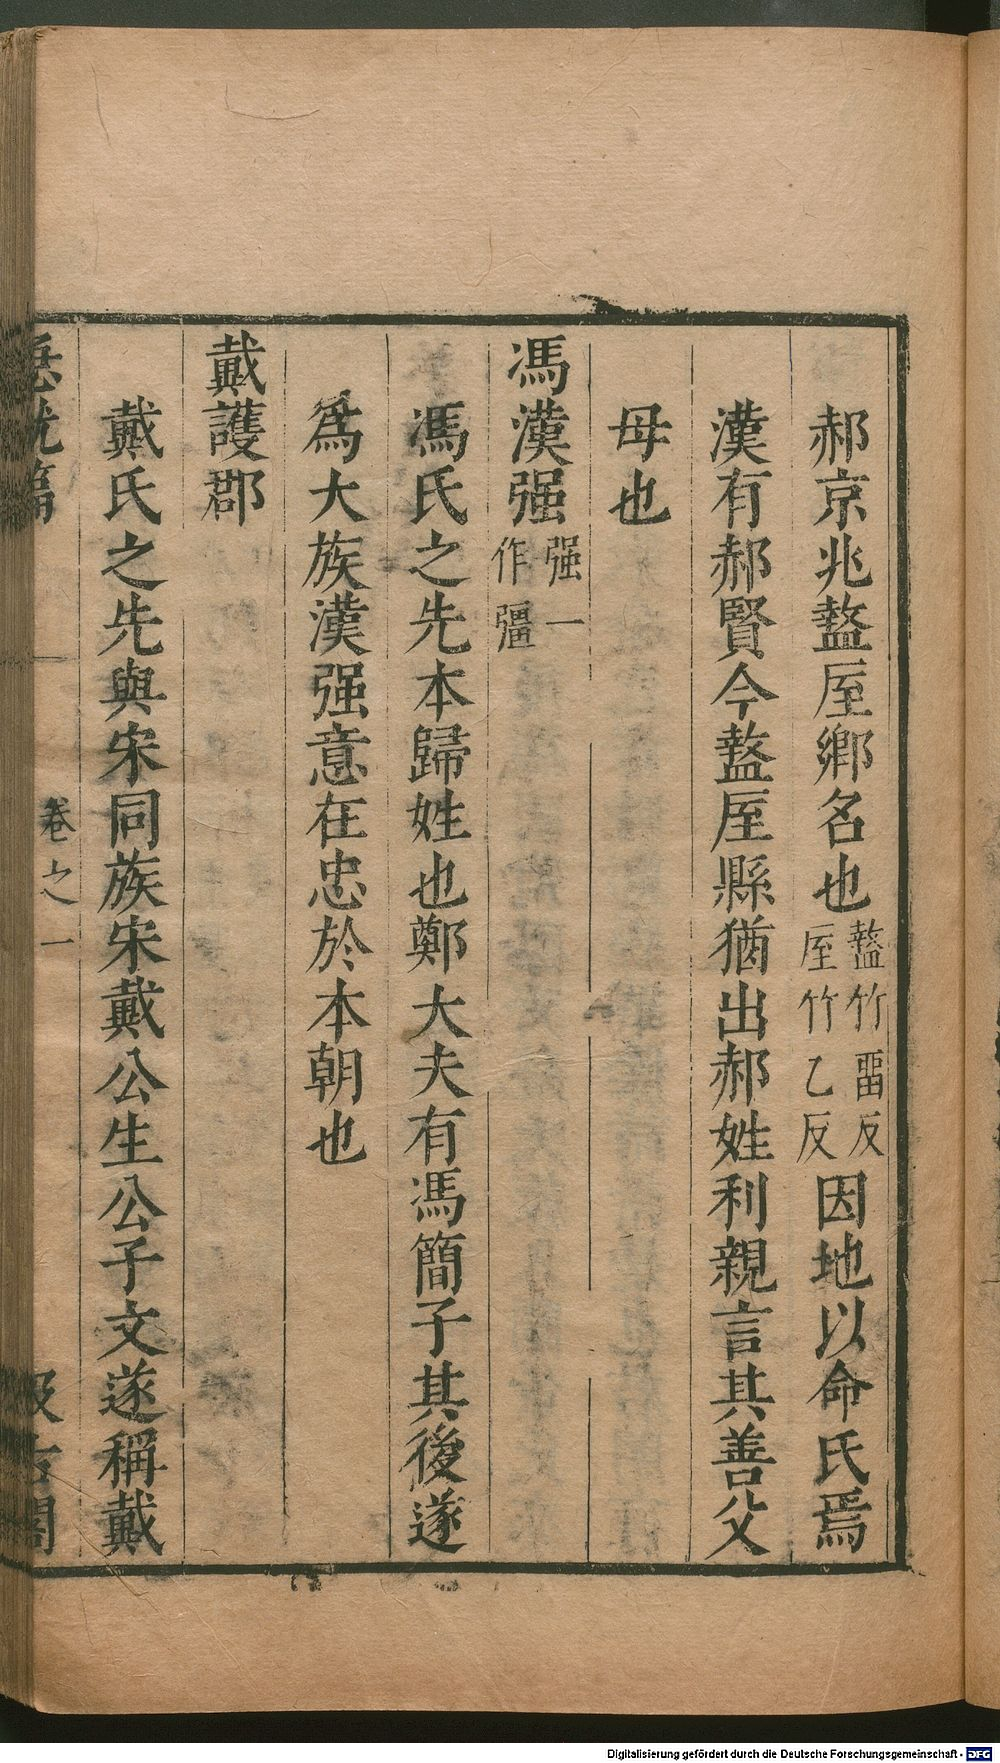 郝京兆盩厔鄉名也盩竹畱反厔竹乙反因地以命氏焉
漢有郝賢今盩厔縣猶出郝姓利親言其善父
母也
馮漢强强一作彊
馮氏之先本歸姓也鄭大夫有馮簡子其後遂
為大族漢强意在忠於本朝也
戴護郡
戴氏之先與宋同族宋戴公生公子文遂稱戴
急就篇
卷之一
汲古閣
Digitalisierung gefördert durch die Deutsche Forschungsgemeinschaft - DFG